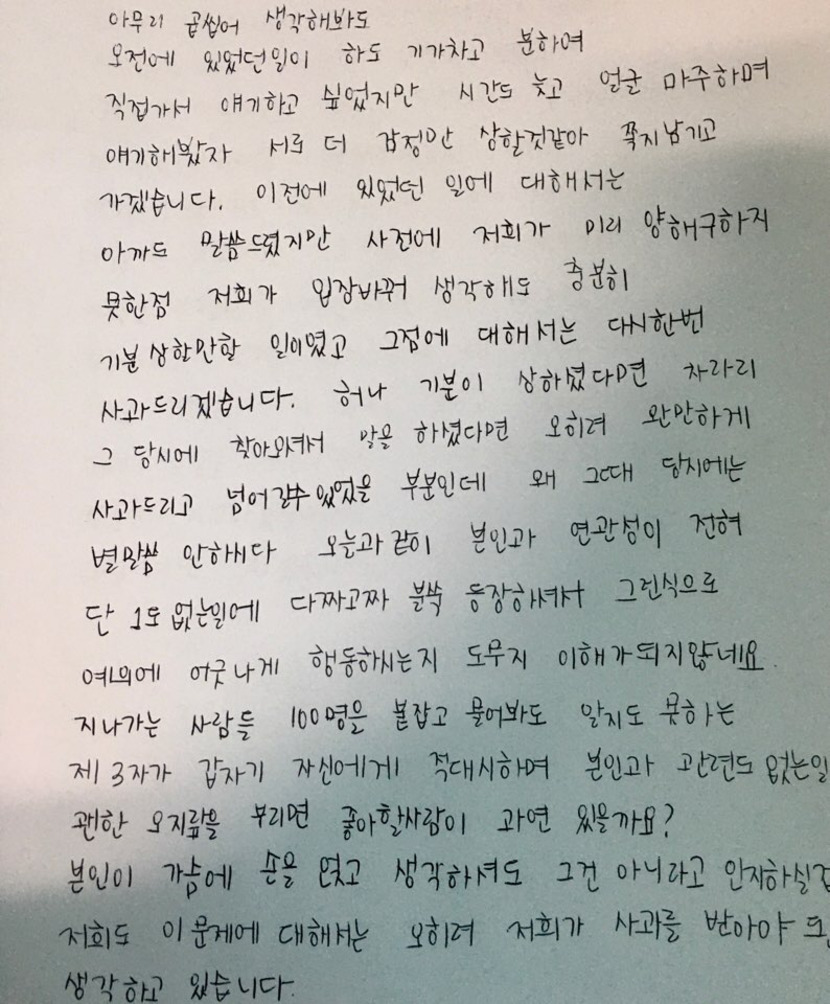 아무리 곱씹어 생각해봐도
오전에 있었던일이 하도 기가차고 분하여
직접가서 얘기하고 싶었지만 시간도 늦고 얼굴 마주하며
얘기해봤자 서로 더 감정만 상할것같아 쪽지남기고
가겠습니다. 이전에 있었던 일에 대해서는
아까도 말씀드렸지만 사전에 저희가 미리 양해구하지
못한점 저희가 입장바꿔 생각해도 충분히
기분상할만할 일이였고 그점에 대해서는 다시한번
사과드리겠습니다. 허나 기분이 상하셨다면 차라리
그 당시에 찾아와셔서 말을 하셨다면 오히려 완만하게
사과드리고 넘어갈수있었을 부분인데 왜 그때 당시에는
별말씀 안하시다 오늘과같이 본인과 연관성이 전혀
단 1도 없는일에 다짜고짜 불쑥 등장하셔서 그런식으로
예의에 어긋나게 행동하시는지 도무지 이해가되지않네요.
지나가는 사람들 100명을 붙잡고 물어봐도 알지도 못하는
제3자가 갑자기 자신에게 적대시하며 본인과 관련도 없는일
괜한 오지랖을 부리면 좋아할사람이 과연 있을까요?
본인이 가슴에 손을 얹고 생각하셔도 그건 아니라고 인지하실
저희도 이문제에 대해서는 오히려 저희가 사과를 받아야
생각하고 있습니다.